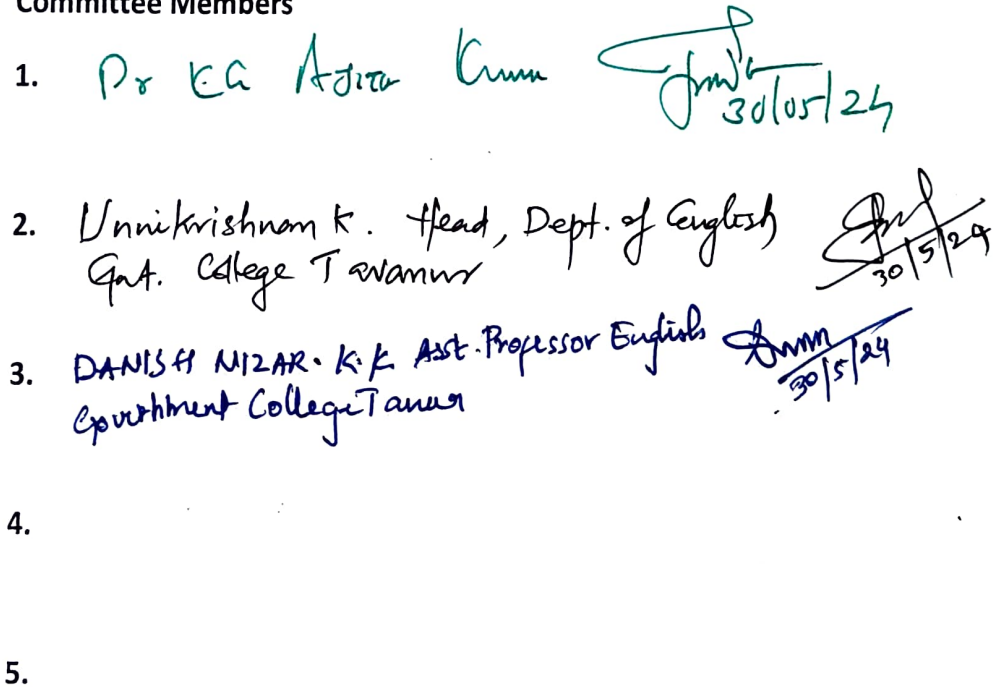 Committee Members
1. Dr KG Ajith Kumar 30/05/24
2. Unnikrishnan K. Head, Dept. of English 30/5/24
Govt. College Tavanur
3. DANISH NIZAR. K.K Asst. Professor English 30/5/24
Government College Tanur
4.
5.